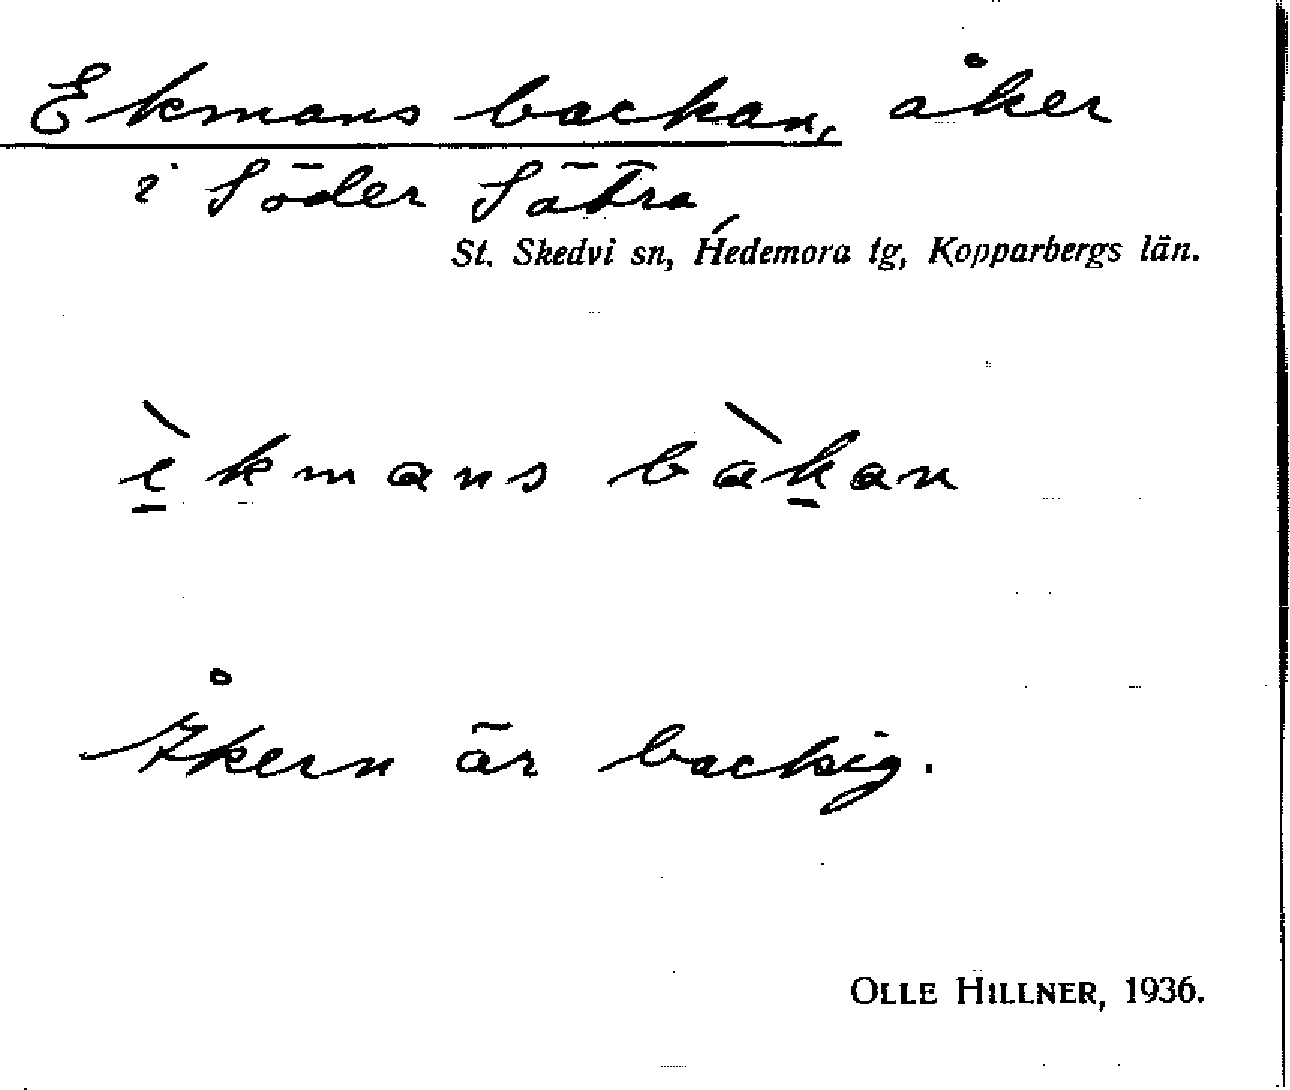 Ekmans backan, åker
i Söder Sätra,
St. Skedvi sn, Hedemora tg, Kopparbergs län.
è̱kmans bàḵan
Åkern är backig.
OLLE HILLNER, 1936.